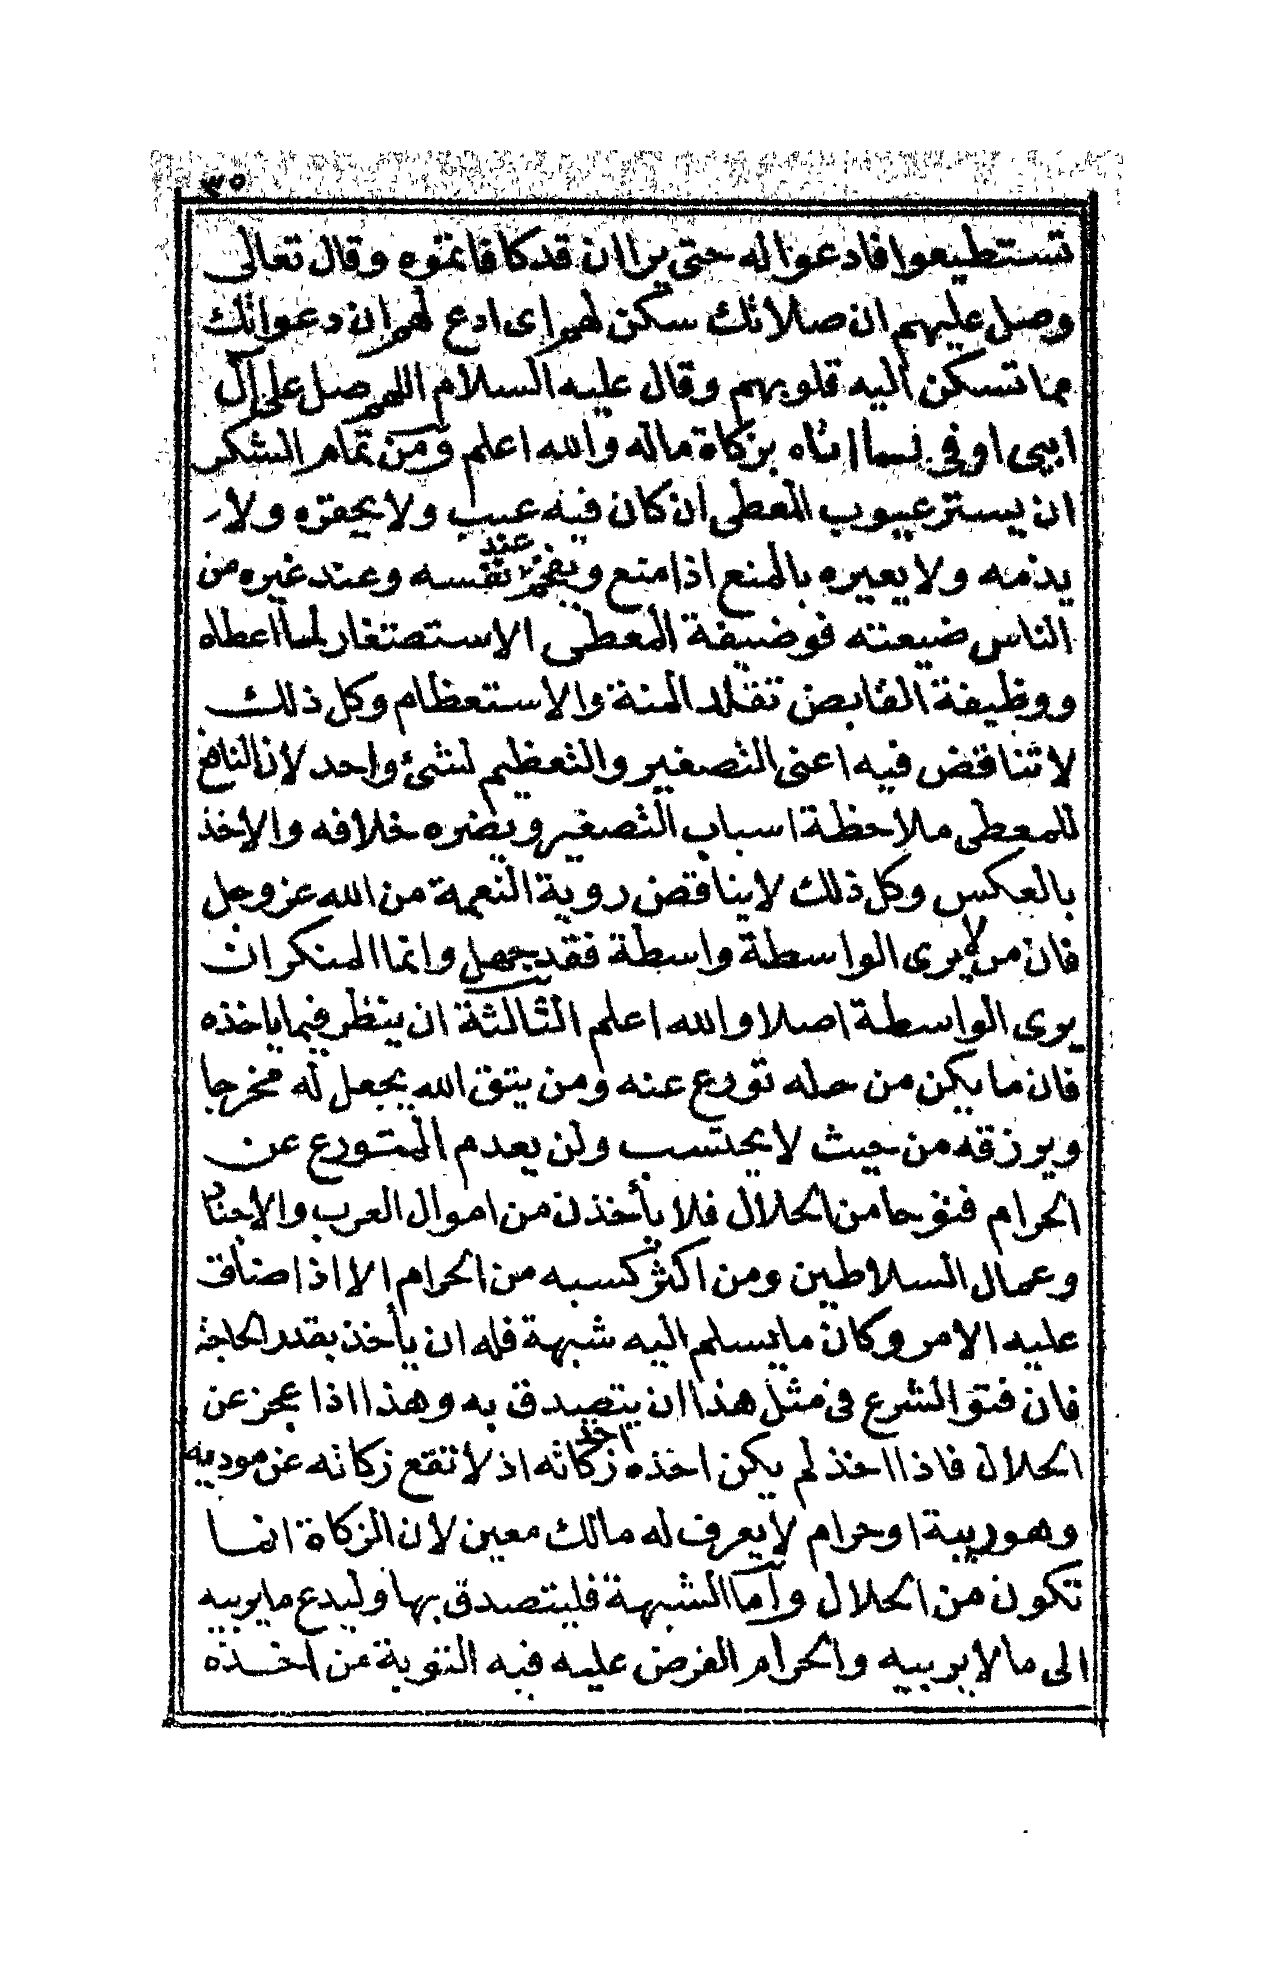 ٣٥
تستطيعوا فادعوا له حتى يرا ان قد كافاتموه وقال تعالى
وصل عليهم ان صلاتك سكن لهم اى ادع لهم ان دعواتك
مما تسكن اليه قلوبهم وقال عليه السلام اللهم صل على ال
ابى اوفى لما اتاه بزكاة ماله والله اعلم ومن تمام الشكر
ان يستر عيوب المعطى ان كان فيه عيب ولا يحقره ولا
يذمه ولا يعيره بالمنع اذا منع ويفخم عند نفسه وعند غيره من
الناس ضيعته فوضيفة المعطى الاستصتغار لما اعطاه
ووظيفة القابض تقلد المنة والاستعظام وكل ذلك
لا تناقض فيه اعنى التصغير والتعظيم لشئ واحد لان النافع
للمعطى ملاحظة اسباب التصغير ويضره خلافه والاخذ
بالعكس وكل ذلك لا يناقض روية النعمة من الله عز وجل
فان من لا يرى الواسطة واسطة فقد جهل وانما المنكر ان
يرى الواسطة اصلا والله اعلم الثالثة ان ينظر فيما ياخذه
فان ما يكن من حله تورع عنه ومن يتق الله يجعل له مخرجا
ويرزقه من حيث لا يحتسب ولن يعدم المتورع عن
الحرام فتوحا من الحلال فلا يأخذن من اموال العرب والاجناد
وعمال السلاطين ومن اكثر كسبه من الحرام الا اذا ضاق
عليه الامر وكان ما يسلم اليه شبهة فله ان يأخذ بقدر الحاجة
فان فتوا الشرع فى مثل هذا ان يتصدق به وهذا اذا عجز عن
الحلال فاذا اخذ لم يكن اخذه اخذ زكاته اذ لا تقع زكاته عن موديه
وهو ريبة او حرام لا يعرف له مالك معين لان الزكاة انما
تكون من الحلال واما الشبهة فليتصدق بها وليدع ما يريبه
الى ما لا يريبيه والحرام الفرض عليه فيه التوبة من اخذه